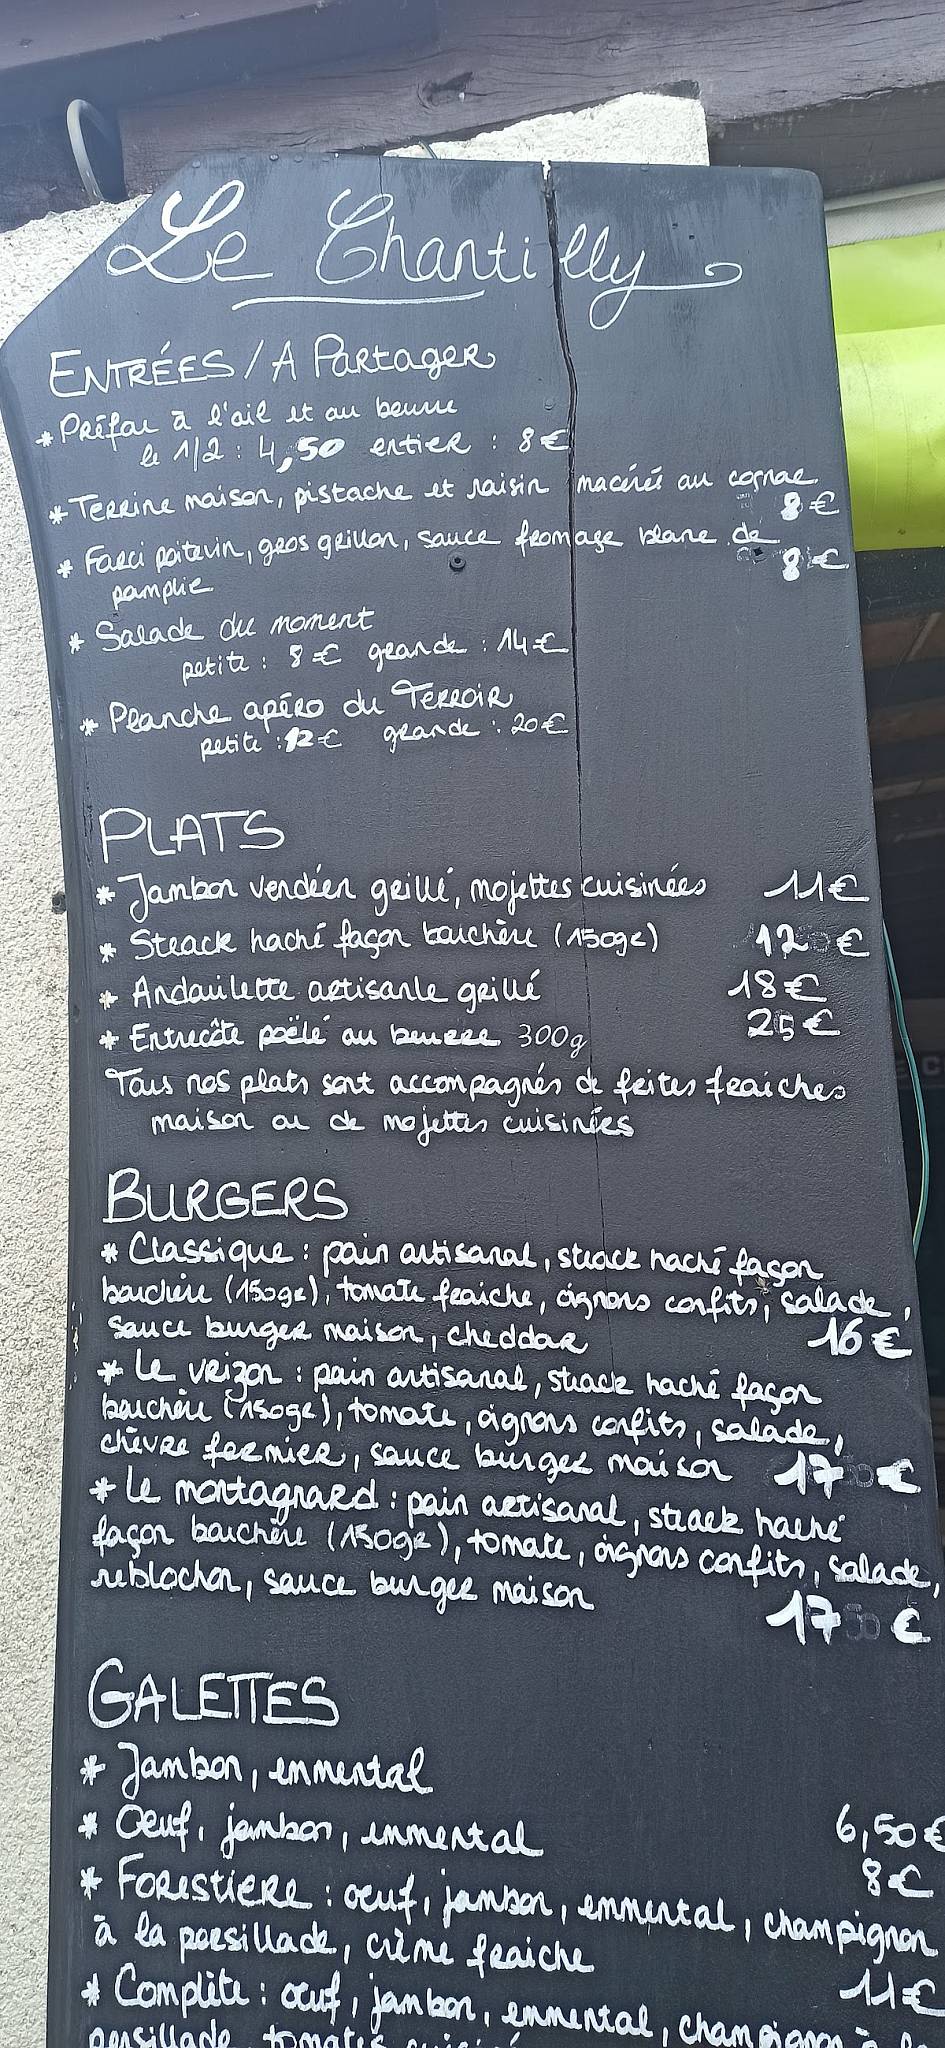 Le Chantilly
ENTRÉES / A PARTAGER
* Préfou à l'ail et au beurre
le 1/2 : 4,50 entier : 8€
* Terrine maison, pistache et raisin macéré au cognac
8€
* Farci poitevin, gros grillon, sauce fromage blanc de
8€
pamplie
* Salade du moment
petite : 8€ grande : 14€
* Planche apéro du Terroir
petite : 12€ grande : 20€
PLATS
* Jambon vendéen grillé, mojettes cuisinées 11€
* Steack haché façon bouchère (150gr) 12 €
* Andouilette artisanle grillé 18€
* Entrecôte poêlé au beurre 300g 25€
Tous nos plats sont accompagnés de frites fraiches
maison ou de mojettes cuisinées
BURGERS
* Classique : pain artisanal, steack haché façon
bouchère (150gr), tomate fraiche, oignons confits, salade,
sauce burger maison, cheddar 16€
* Le vrizon : pain artisanal, steack haché façon
bouchère (150gr), tomate, oignons confits, salade,
chèvre fermier, sauce burger maison 17 €
* Le montagnard : pain artisanal, steack haché
façon bouchère (150gr), tomate, oignons confits, salade,
reblochon, sauce burger maison
17 €
GALETTES
* Jambon, emmental
* Oeuf, jambon, emmental 6,50€
8€
* Forestiere : oeuf, jambon, emmental, champignon
à la persillade, crème fraiche
11€
* Complète : oeuf, jambon, emmental, champignons à la
persillade, tomates